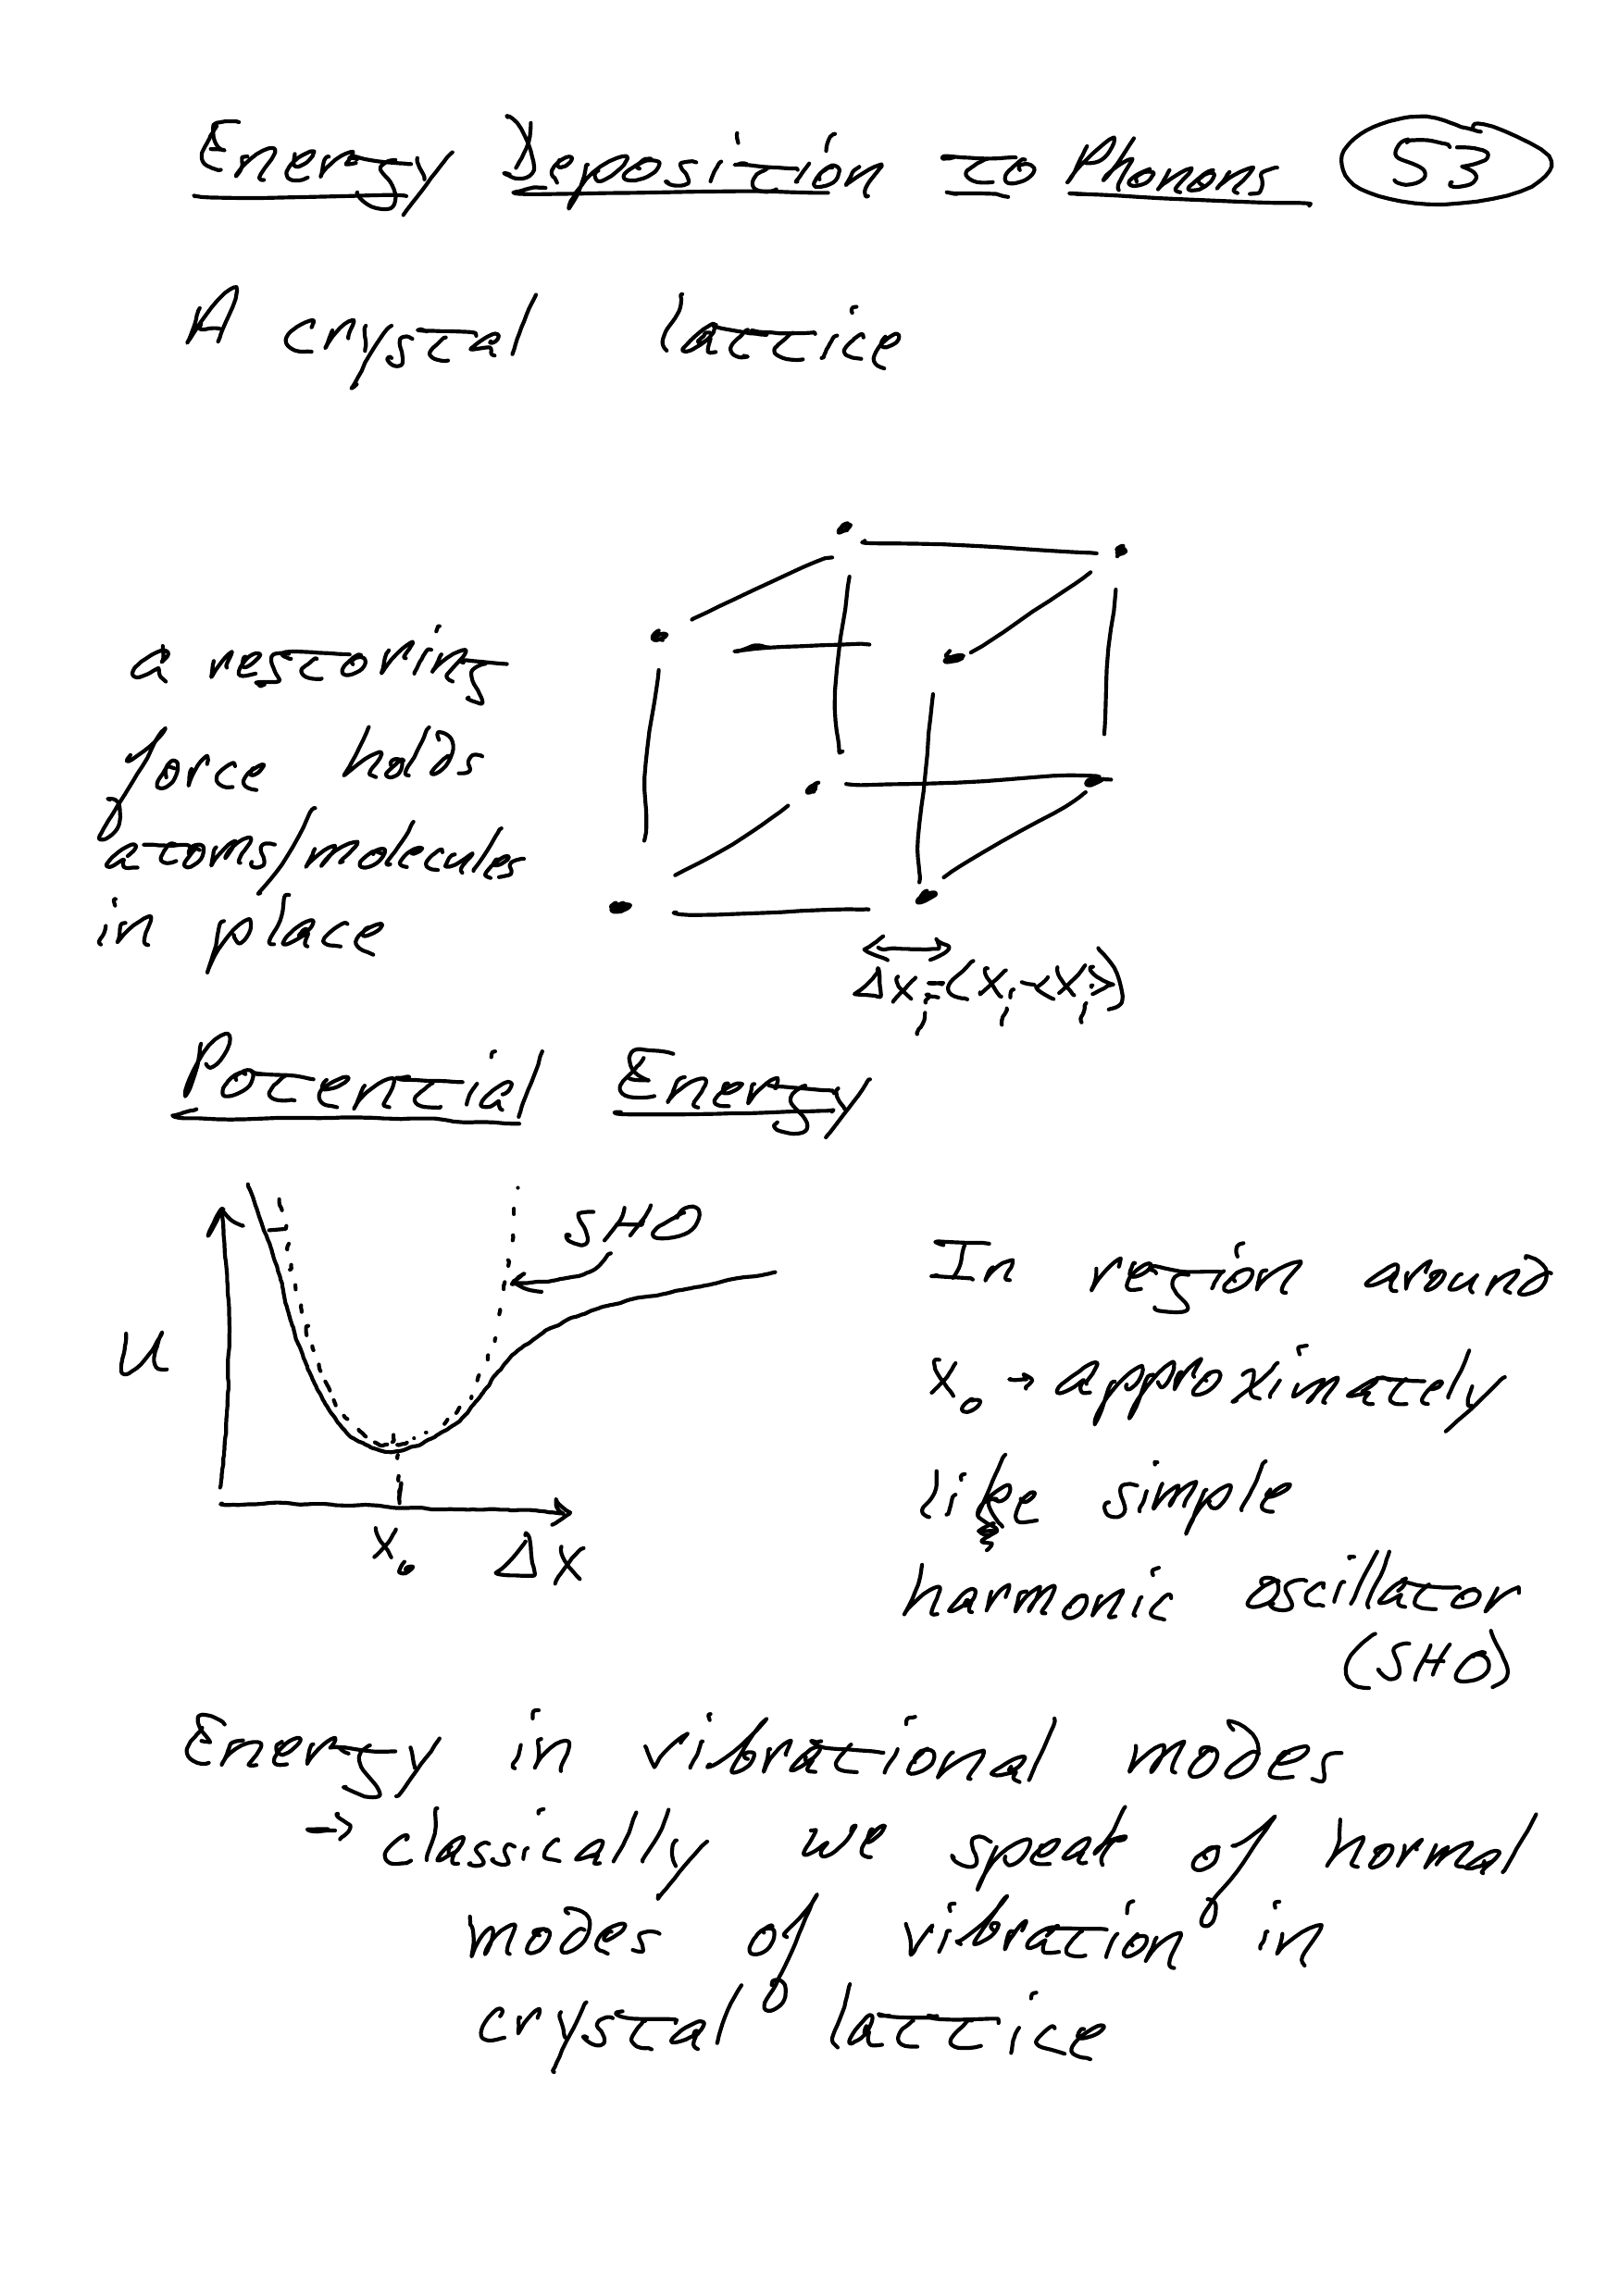 Energy Deposition to Phonons 53
A crystal lattice
a restoring
force holds
atoms/molecules
in place
Δxᵢ=(xᵢ-<xᵢ>)
Potential Energy
SHO
U
x₀ Δx
In region around
x₀ → approximately
like simple
harmonic oscillator
(SHO)
Energy in vibrational modes
→ classically we speak of normal
modes of vibration in
crystal lattice